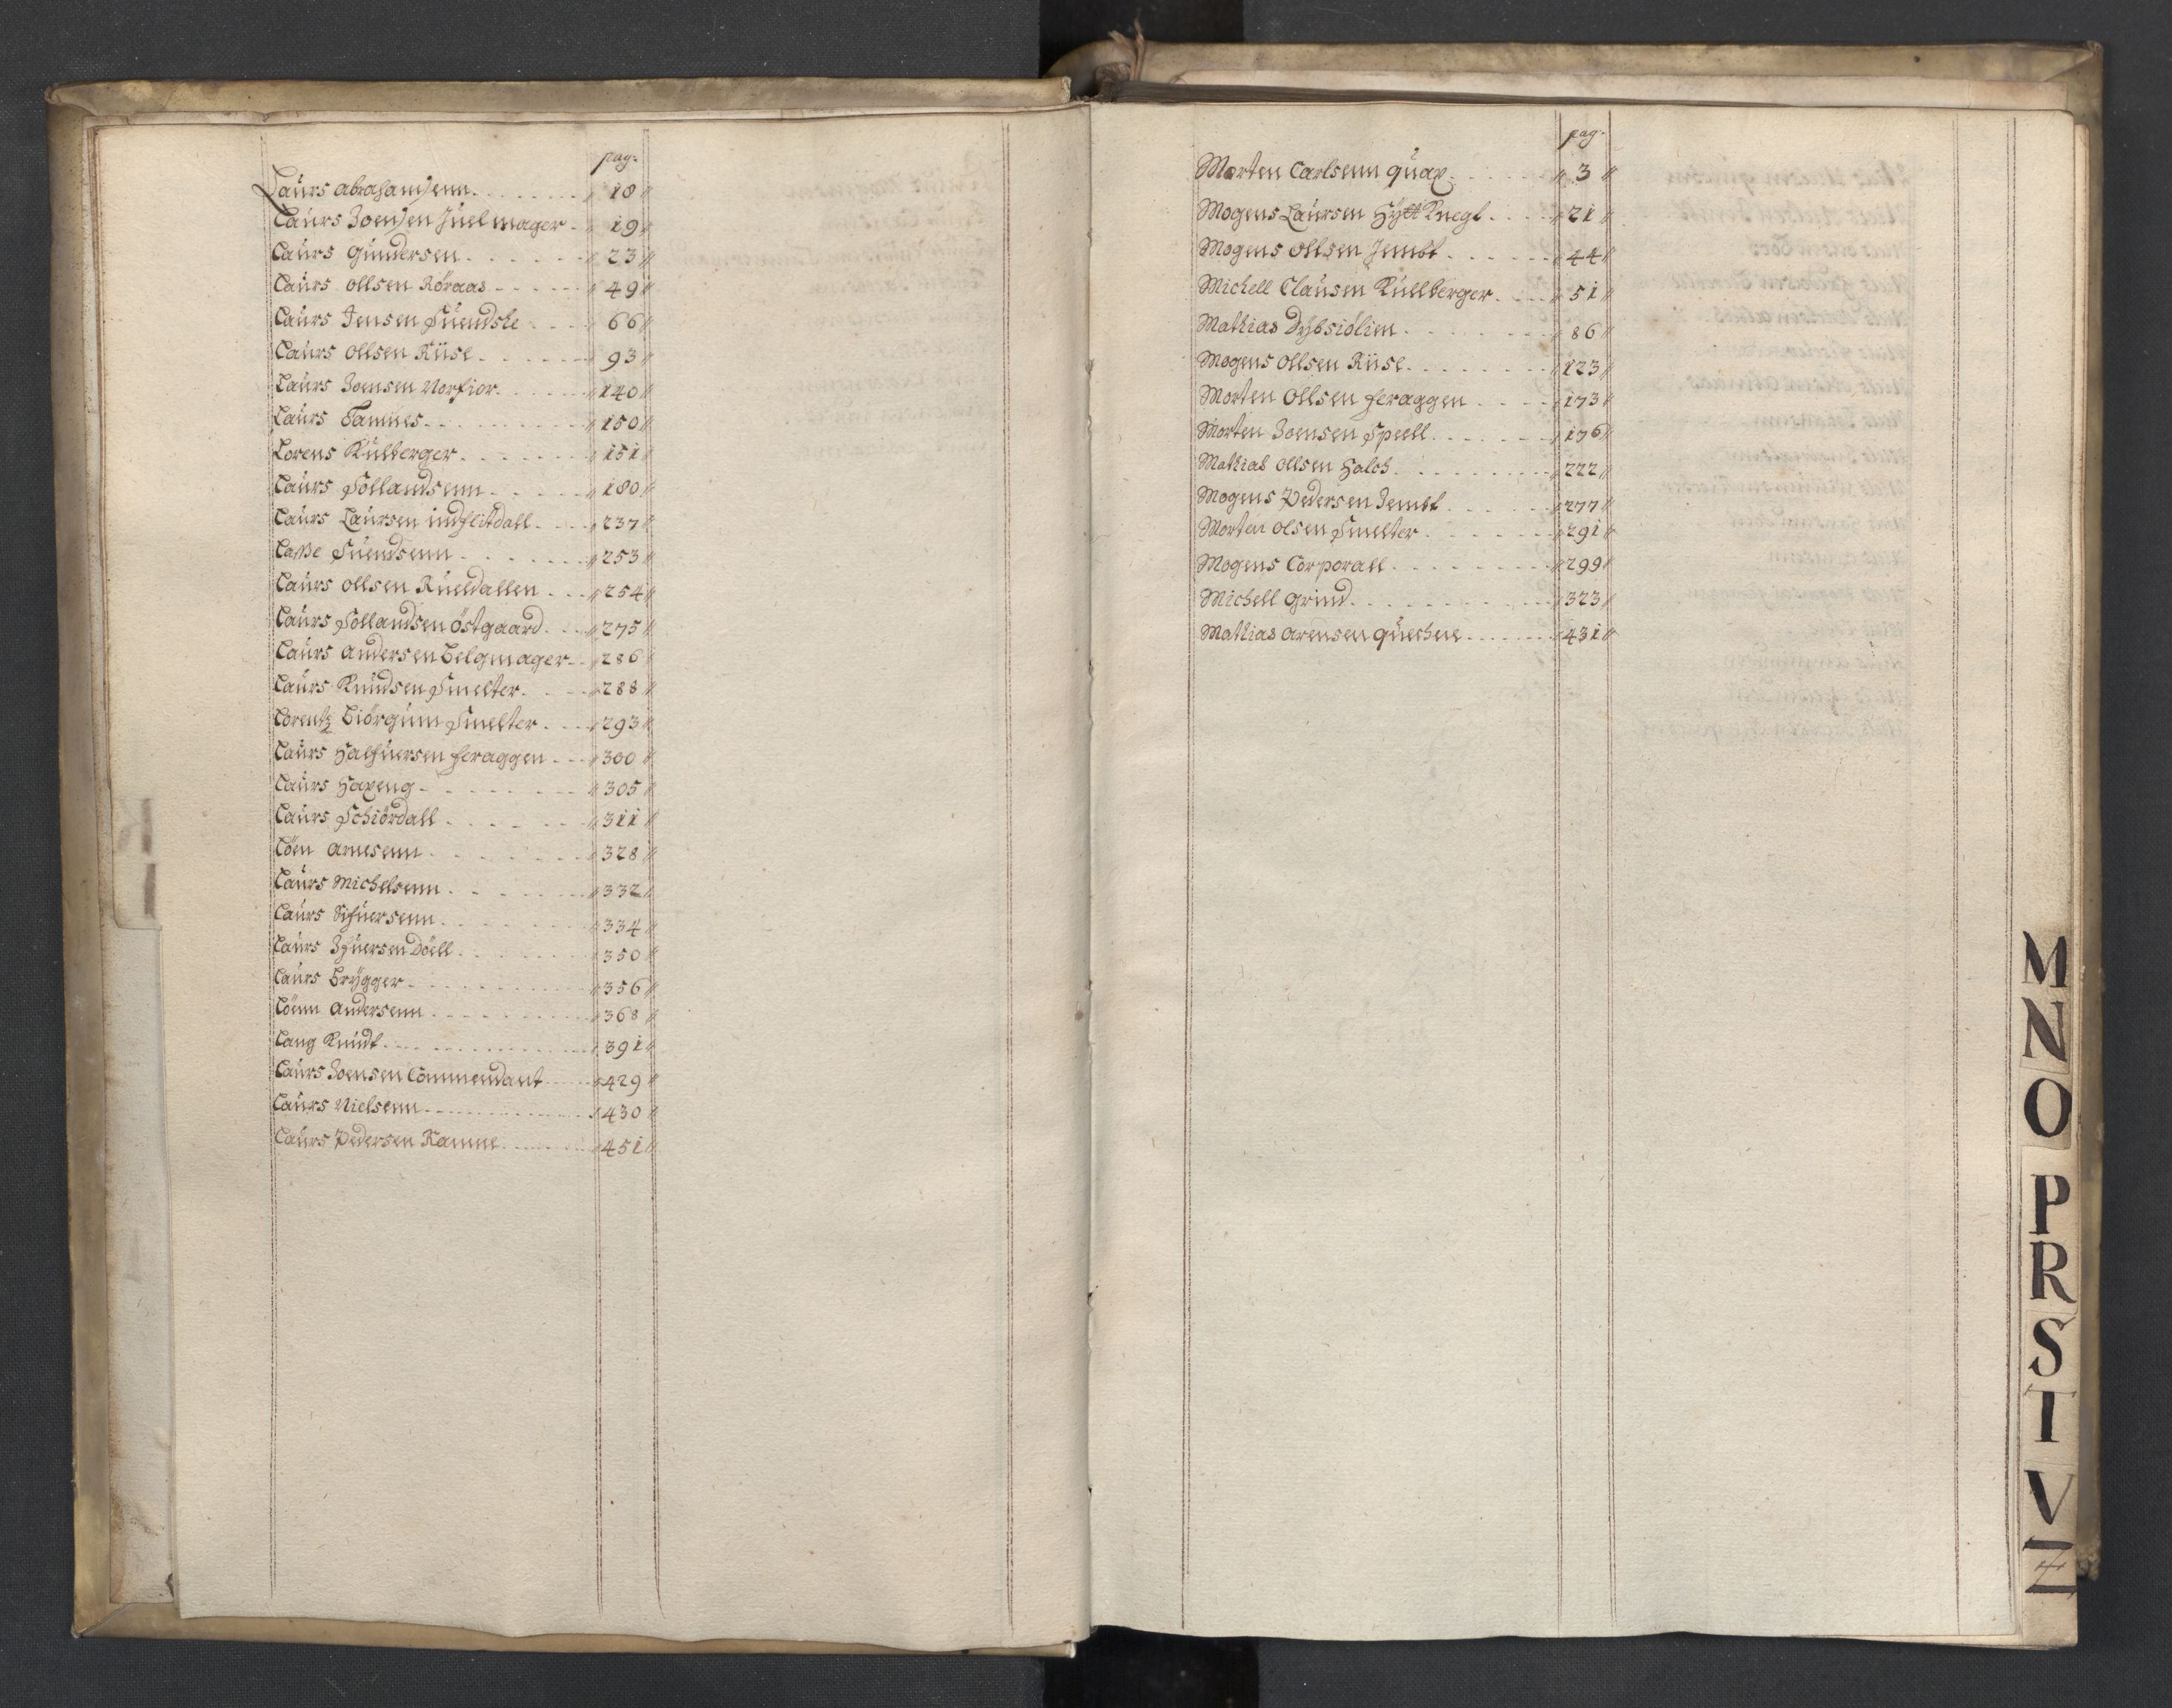 pag:
Laürs abrahamsenn " 18 "
Laürs Joensen Jüelmager " 19 "
Laürs Gündersen " 23 "
Laürs ollsen Röraas " 49 "
Laürs Jensen Süendske " 66 "
Laürs ollsen Riise " 93 "
Laürs Joensen Norfior " 140 "
Laürs Tamnes " 150 "
Lorens Külberger " 151 "
Laürs Föllandsenn " 180 "
Laürs Laürsen indsetdall " 237 "
Lasse Süendsenn " 253 "
Laürs ollsen Rüeldallen " 254 "
Laürs Föllandsen östgaard " 275 "
Laürs andersen Belgmager " 286 "
Laürs Knüdsen Smelter " 288 "
Lorentz Biörgüm Smelter " 293 "
Laürs Halfüersen feraggen " 300 "
Laürs Haxeng " 305 "
Laürs Schiördall " 311 "
Löen arnesenn " 328 "
Laürs Michelsenn " 332 "
Laürs Sifüersenn " 334 "
Laürs Ifüersen Döell " 350 "
Laürs Brÿgger " 356 "
Löenn andersenn " 368 "
Lang Knüdt " 391 "
Laürs Joensen Commendant " 429 "
Laürs Nielsenn " 430 "
Laürs Pedersen Ramne " 451 "
pag:
Morten Carlsenn qüax " 3 "
Mogens Laürsen Hÿtt Knegt " 21 "
Mogens ollsen Jembt " 44 "
Michell Claüsen Küllberger " 51 "
Mathias Dÿbsiölien " 86 "
Mogens ollsen Riise " 123 "
Morten ollsen feraggen " 173 "
Morten Joensen Speell " 176 "
Mathias ollsen Halch " 222 "
Mogens Pedersen Jembt " 277 "
Morten olsen Smelter " 291 "
Mogens Corporall " 299 "
Michell Grind " 323 "
Mathias arensen qüerhne " 431 "
M
N
O
P
R
S
T
V
Z